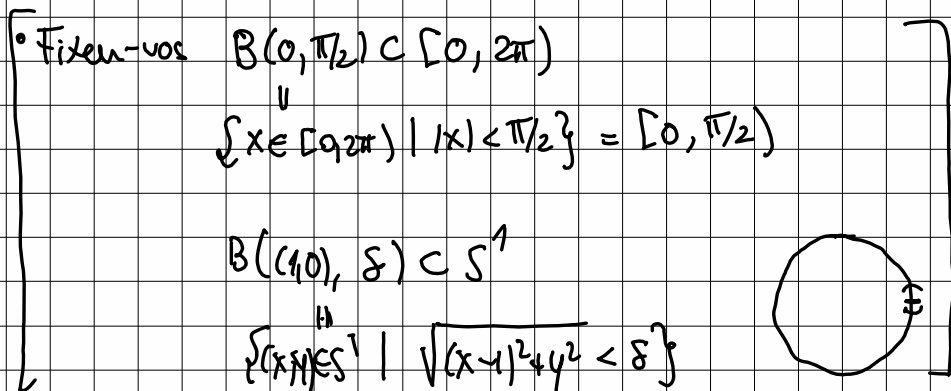 • Fixeu-vos B(0, π/2) ⊂ [0, 2π)
॥
{x ∈ [0,2π) | |x| < π/2} = [0, π/2)
B((1,0), δ) ⊂ S¹
॥
{(x,y) ∈ S¹ | √((x-1)²+y²) < δ}